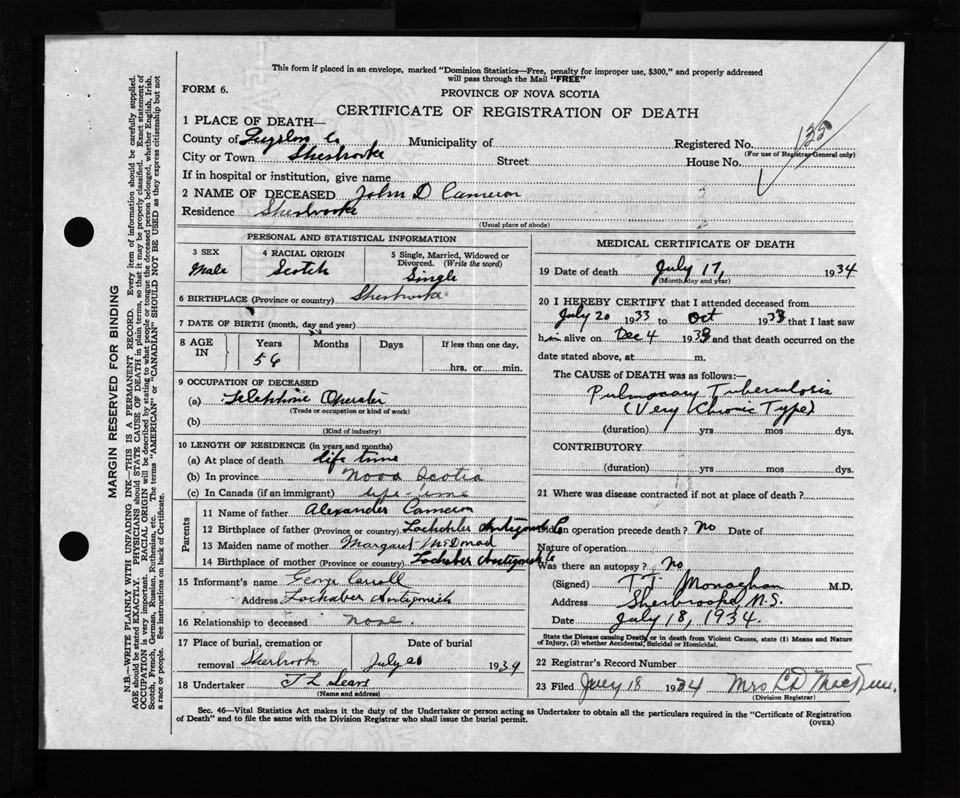 This form if placed in an envelope, marked "Dominion Statistics—Free, penalty for improper use, $300," and properly addressed
will pass through the Mail "FREE"
FORM 6.
PROVINCE OF NOVA SCOTIA
CERTIFICATE OF REGISTRATION OF DEATH
135
1 PLACE OF DEATH—
County of Municipality of Registered No.
(For use of Registrar General only)
City or Town Sherbrooke Street House No.
If in hospital or institution, give name
2 NAME OF DECEASED John D Cameron
Residence Sherbrooke
(Usual place of abode)
PERSONAL AND STATISTICAL INFORMATION
3 SEX 4 RACIAL ORIGIN 5 Single, Married, Widowed or
Divorced. (Write the word)
Male Scotch Single
6 BIRTHPLACE (Province or country) Sherbrooke
7 DATE OF BIRTH (month, day and year)
8 AGE IN Years Months Days If less than one day,
56 hrs. or min.
9 OCCUPATION OF DECEASED
(a) Telephone Operator
(Trade or occupation or kind of work)
(b)
(Kind of industry)
10 LENGTH OF RESIDENCE (in years and months)
(a) At place of death life time
(b) In province Nova Scotia
(c) In Canada (if an immigrant) life time
Parents
11 Name of father Alexander Cameron
12 Birthplace of father (Province or country) Lochaber Antigonish Co
13 Maiden name of mother Margaret McDonald
14 Birthplace of mother (Province or country) Lochaber Antigonish Co
15 Informant's name George Carroll
Address Lochaber Antigonish
16 Relationship to deceased none.
17 Place of burial, cremation or Date of burial
removal Sherbrooke July 20 1934
18 Undertaker J L Sears
(Name and address)
MEDICAL CERTIFICATE OF DEATH
19 Date of death July 17, 1934
(Month, day and year)
20 I HEREBY CERTIFY that I attended deceased from
July 20 1933 to Oct 1933 that I last saw
him alive on Dec 4 1933 and that death occurred on the
date stated above, at m.
The CAUSE of DEATH was as follows:—
Pulmonary Tuberculosis
(Very Khronic Type)
(duration) yrs mos dys.
CONTRIBUTORY
(duration) yrs mos dys.
21 Where was disease contracted if not at place of death?
Did an operation precede death? No Date of
Nature of operation
Was there an autopsy? No
(Signed) T T Monaghan M.D.
Address Sherbrooke, N.S.
Date July 18, 1934.
State the Disease causing Death, or in death from Violent Causes, state (1) Means and Nature
of Injury, (2) whether Accidental, Suicidal or Homicidal.
22 Registrar's Record Number
23 Filed July 18 1934 Mrs
(Division Registrar)
Sec. 46—Vital Statistics Act makes it the duty of the Undertaker or person acting as Undertaker to obtain all the particulars required in the "Certificate of Registration
of Death" and to file the same with the Division Registrar who shall issue the burial permit.
(OVER)
MARGIN RESERVED FOR BINDING
N.B.—WRITE PLAINLY WITH UNFADING INK—THIS IS A PERMANENT RECORD. Every item of information should be carefully supplied.
AGE should be stated EXACTLY. PHYSICIANS should STATE CAUSE OF DEATH in plain terms, so that it may be properly classified. Exact statement of
OCCUPATION is very important. RACIAL ORIGIN will be described by stating to what people or tongue the deceased person belonged, whether English, Irish,
Scotch, French, German, Russian, Ruthenian, etc. The terms "AMERICAN" or "CANADIAN" SHOULD NOT BE USED as they express citizenship but not
a race or people. See instructions on back of Certificate.